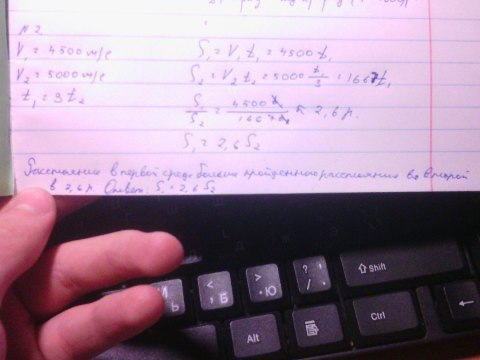 N 2
V₁ = 4500 м/с S₁ = V₁ t₁ = 4500 t₁
V₂ = 5000 м/с S₂ = V₂ t₂ = 5000 t₁/3 = 1667 t₁
t₁ = 3 t₂ S₁/S₂ = 4500 t₁/1667 t₁ ≈ 2,6 р.
S₁ = 2,6 S₂
Расстояние в первой среде больше пройденного расстояния во второй
в 2,6 р. Ответ: S₁ = 2,6 S₂
Ь
< , Б
> . Ю
? / .
⇧ Shift
Alt
Ctrl
←